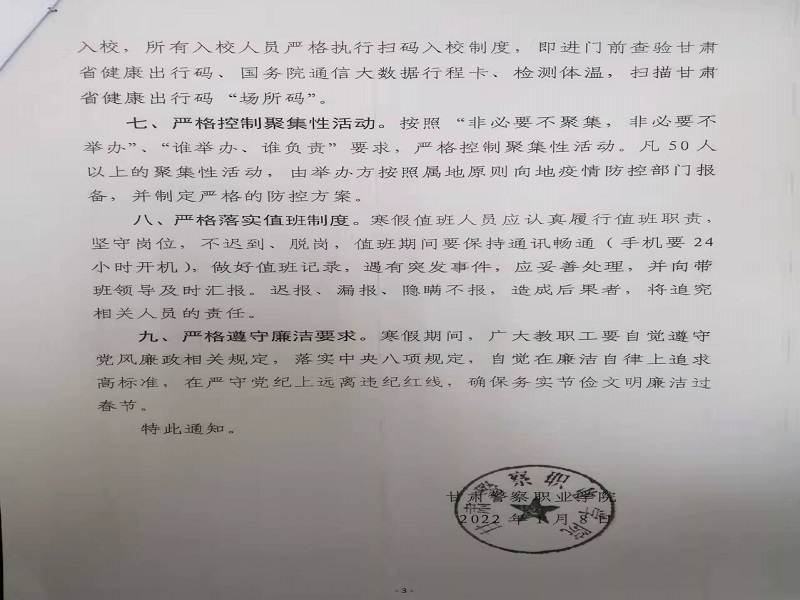 入校，所有入校人员严格执行扫码入校制度，即进门前查验甘肃
省健康出行码、国务院通信大数据行程卡、检测体温，扫描甘肃
省健康出行码“场所码”。
七、严格控制聚集性活动。按照“非必要不聚集，非必要不
举办”、“谁举办、谁负责”要求，严格控制聚集性活动。凡 50 人
以上的聚集性活动，由举办方按照属地原则向地疫情防控部门报
备，并制定严格的防控方案。
八、严格落实值班制度。寒假值班人员应认真履行值班职责，
坚守岗位，不迟到、脱岗，值班期间要保持通讯畅通（手机要 24
小时开机），做好值班记录，遇有突发事件，应妥善处理，并向带
班领导及时汇报。迟报、漏报、隐瞒不报，造成后果者，将追究
相关人员的责任。
九、严格遵守廉洁要求。寒假期间，广大教职工要自觉遵守
党风廉政相关规定，落实中央八项规定，自觉在廉洁自律上追求
高标准，在严守党纪上远离违纪红线，确保务实节俭文明廉洁过
春节。
特此通知。
甘肃警察职业学院
2022 年 1 月 8 日
甘肃警察职业学院
- 3 -